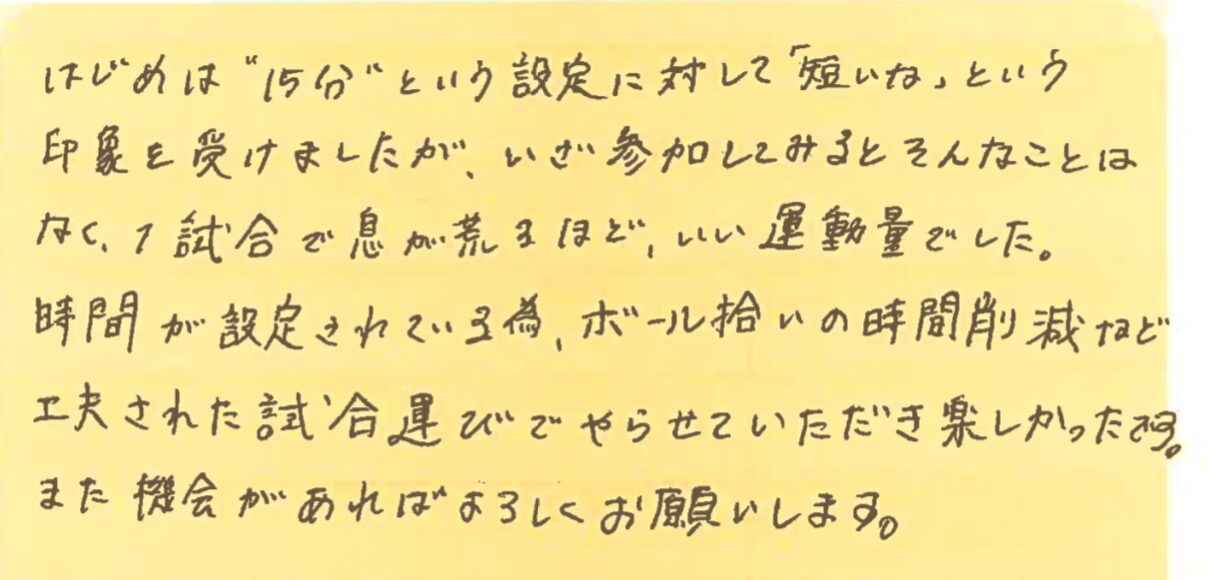 はじめは"15分"という設定に対して「短いな」という
印象を受けましたが、いざ参加してみるとそんなことは
なく、1試合で息が荒るほど、いい運動量でした。
時間が設定されている為、ボール拾いの時間削減など
工夫された試合運びでやらせていただき楽しかったです。
また機会があればよろしくお願いします。